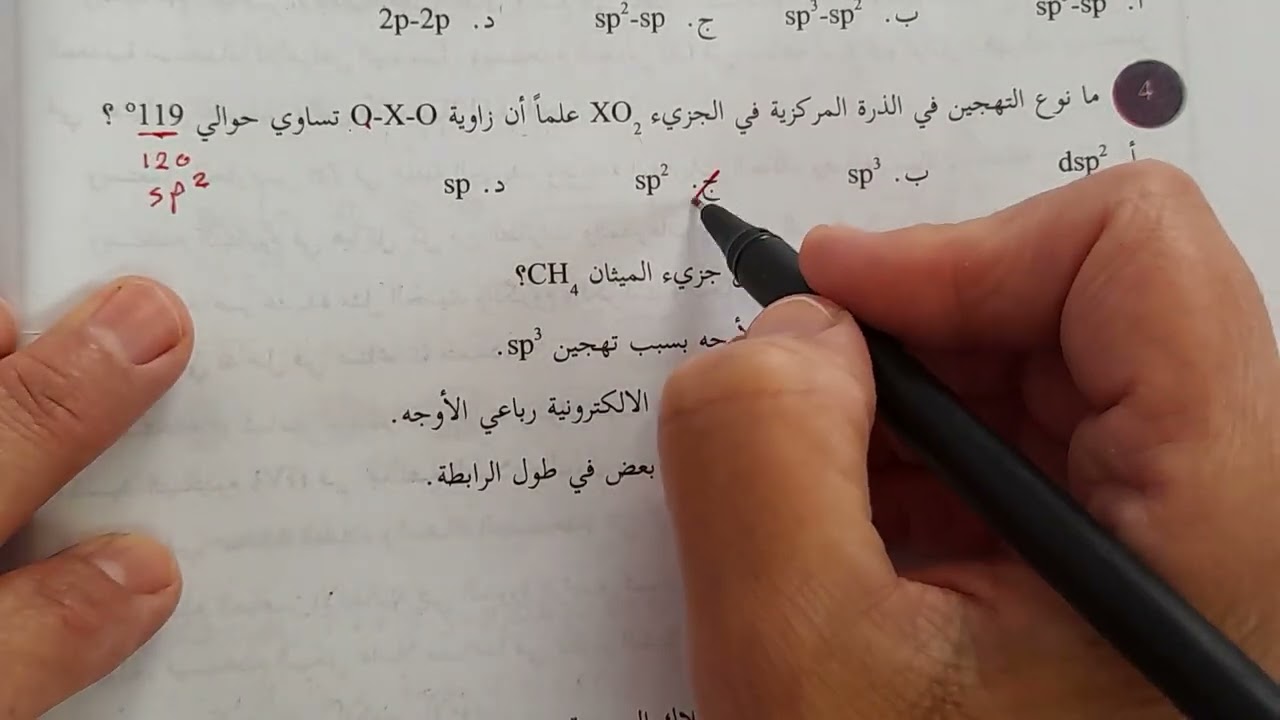 أ. sp³-sp ب. sp³-sp² ج. sp²-sp د. 2p-2p
4 ما نوع التهجين في الذرة المركزية في الجزيء XO₂ علماً أن زاوية O-X-O تساوي حوالي 119° ؟
120
أ. dsp² ب. sp³ ج. sp² د. sp
sp²
جزيء الميثان CH₄؟
بسبب تهجين sp³.
الالكترونية رباعي الأوجه.
بعض في طول الرابطة.